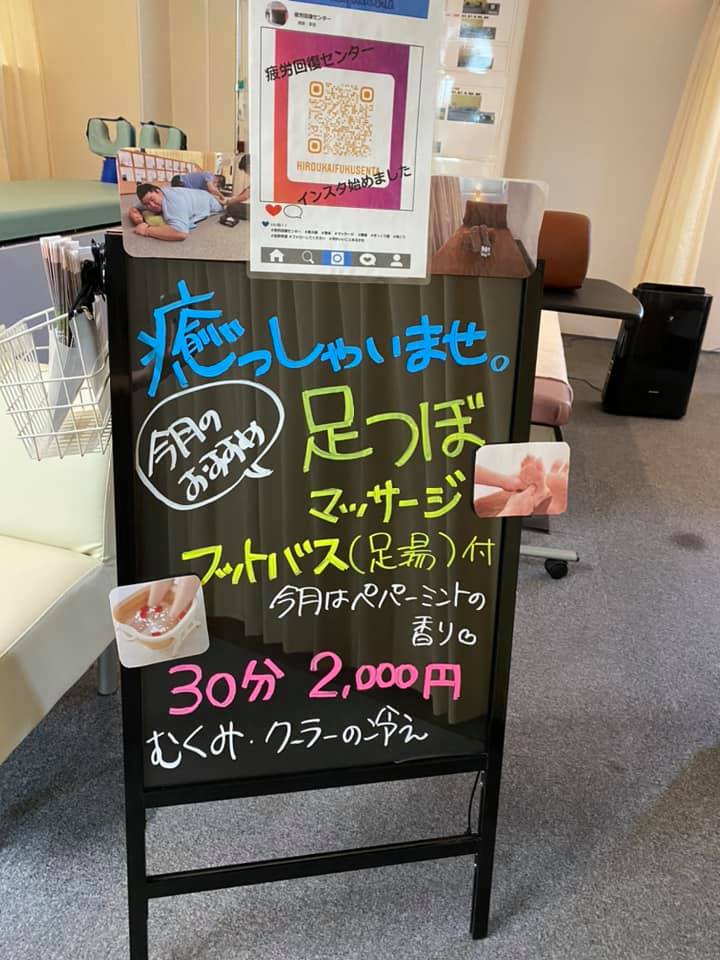 疲労回復センター
疲労回復センター
HIROUKAIFUKUSENTA
インスタ始めました
癒っしゃいませ。
今月の
おすすめ
足つぼ
マッサージ
フットバス(足湯)付
今月はペパーミントの
香り
30分 2,000円
むくみ・クーラーの冷え